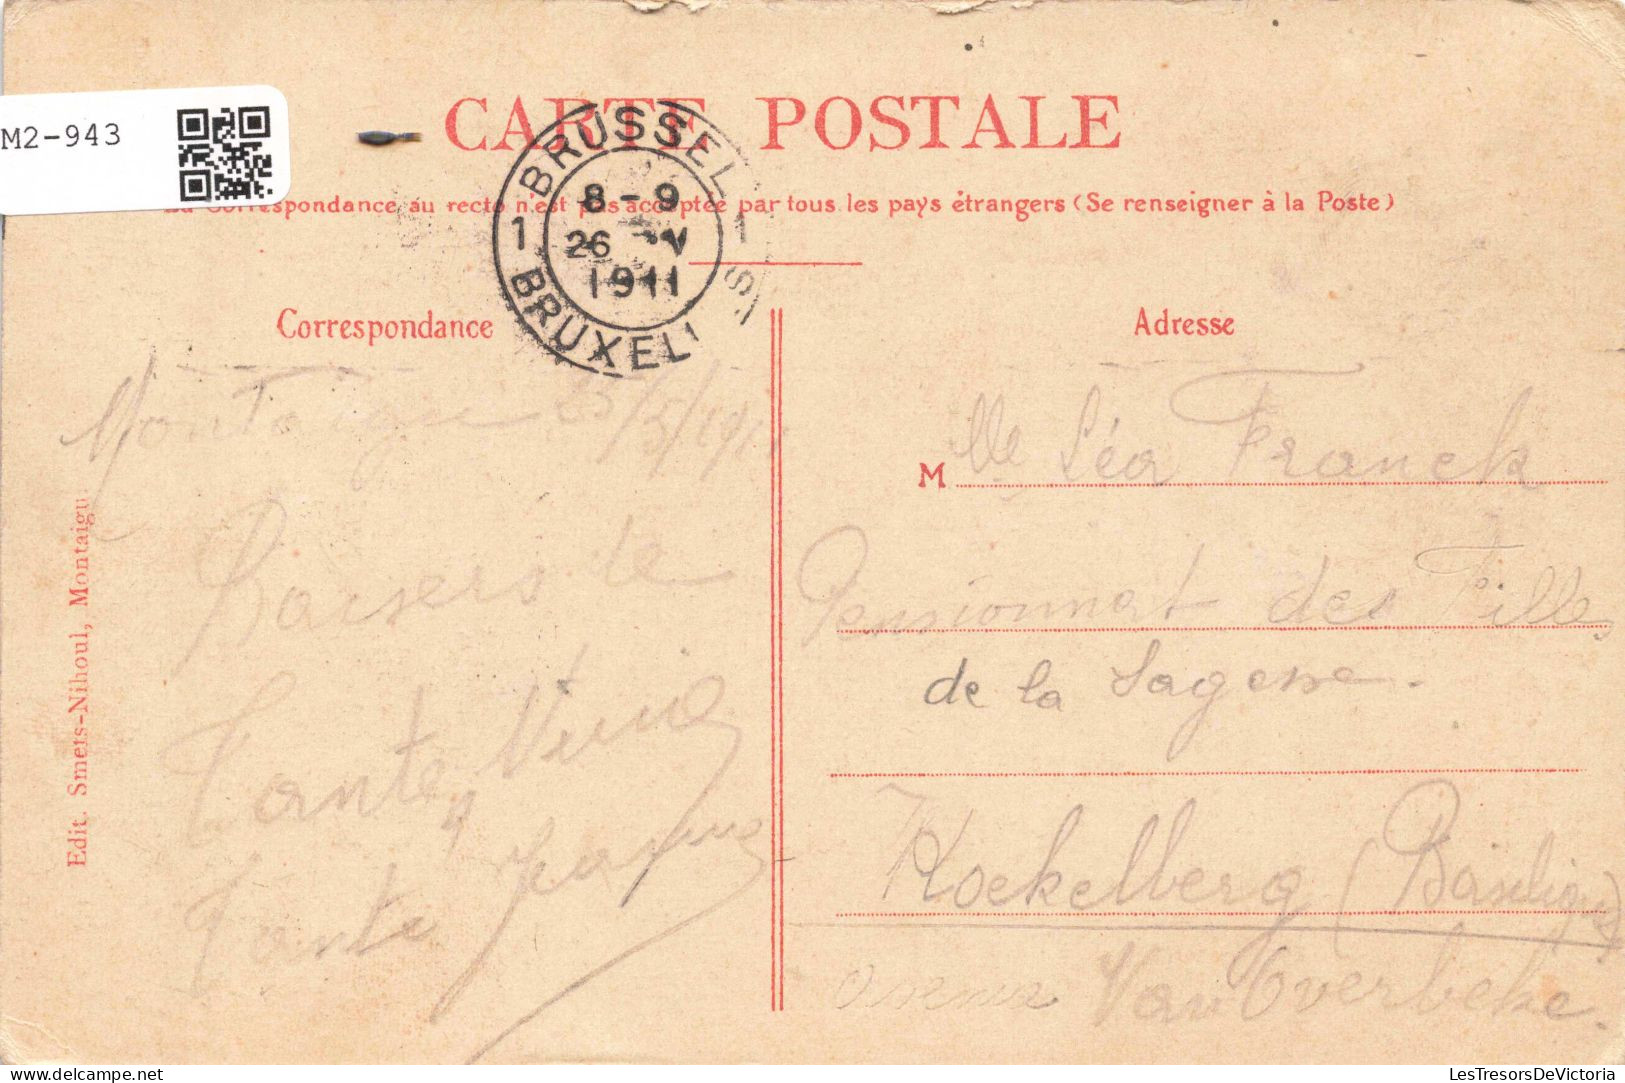 M2-943
CARTE POSTALE
La correspondance au recto n'est pas acceptée par tous les pays étrangers (Se renseigner à la Poste)
BRUSSEL
1 1
8-9
26 V
1911
BRUXEL S
Correspondance
Adresse
Montaigu 25/5/1911
Baisers de
Tante
Tante
Edit. Smets-Nihoul, Montaigu
M lle Léa Franck
Pensionnat des Filles
de la Sagesse.
Koekelberg (
Van Overbeke.
LesTresorsDeVictoria
delcampe.net